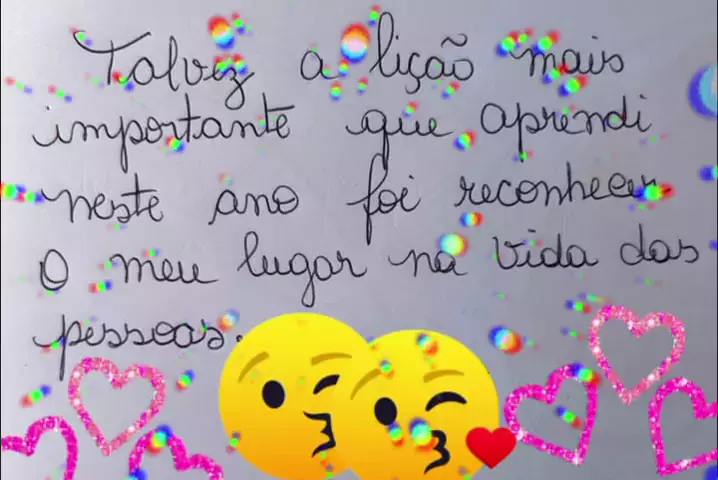 Talvez a lição mais
importante que aprendi
neste ano foi reconhecer
O meu lugar na vida das
pessoas.